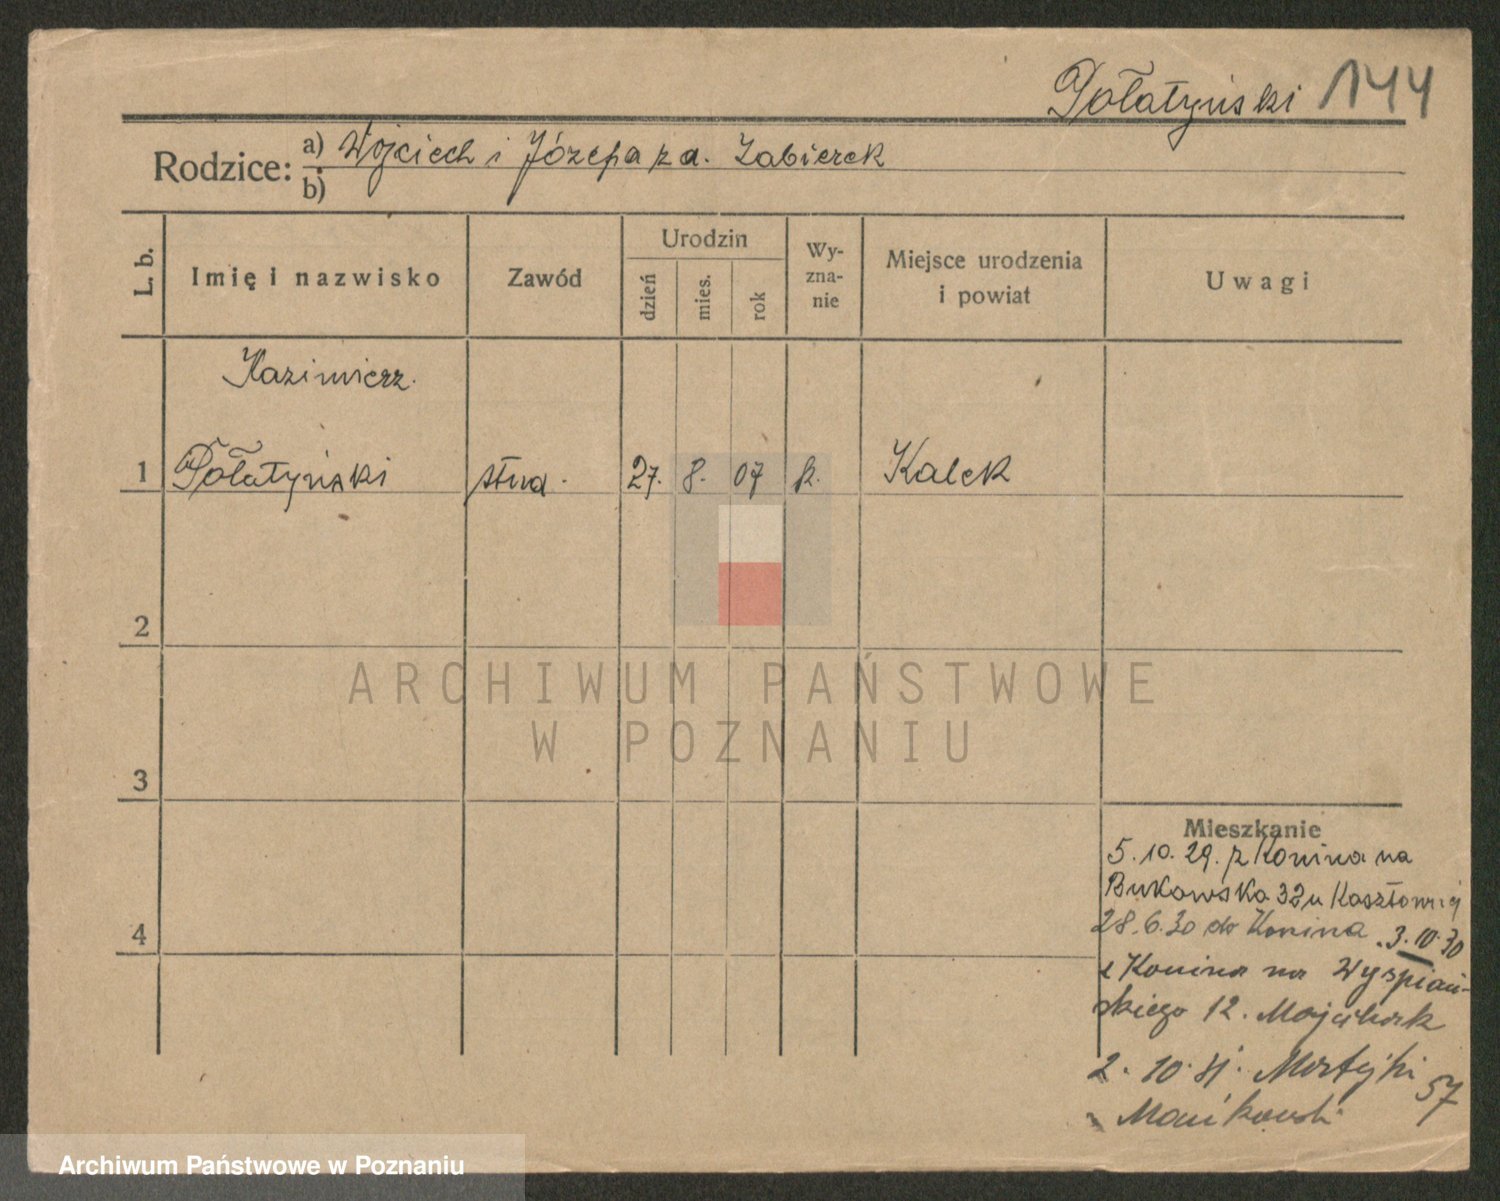 Połatyński 144
Rodzice: a) Wojciech i Józefa z d. Zabierek
b)
L. b. Imię i nazwisko Zawód Urodzin dzień mies. rok Wy-zna-nie Miejsce urodzenia i powiat Uwagi
Kazimierz.
1 Połatyński stud. 27. 8. 07 k. Kalek
2
ARCHIWUM PAŃSTWOWE
W POZNANIU
3
Mieszkanie
5. 10. 29. z Konina na
Bukowska 32 u
28.6.30 do Konina . 3. 10. 30
z Konina na Wyspiań-
skiego 12.
4
2. 10. 31. 57
Archiwum Państwowe w Poznaniu